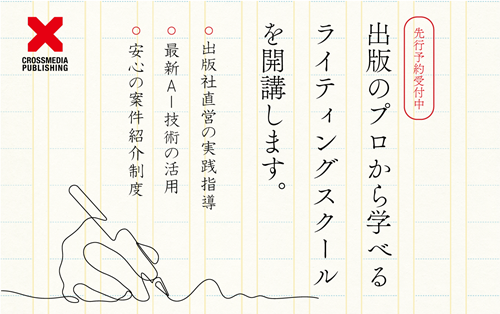 先行予約受付中
出版のプロから学べる
ライティングスクール
を開講します。
出版社直営の実践指導
最新AI技術の活用
安心の案件紹介制度
CROSSMEDIA
PUBLISHING